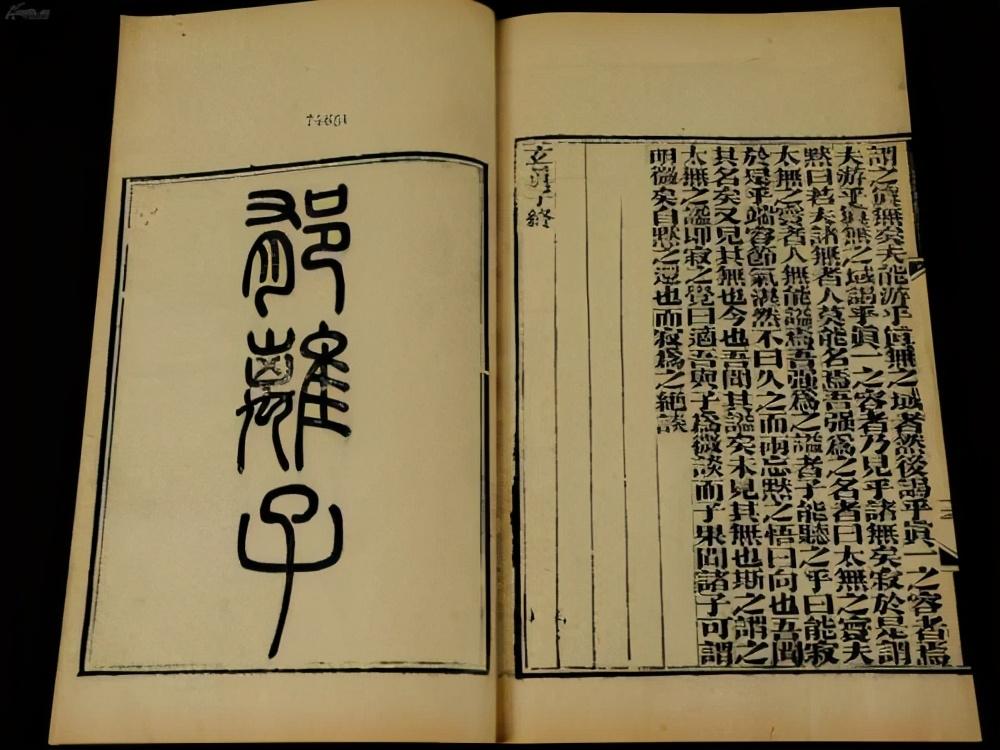 謂之真無矣夫能游乎真無之域者然後謁乎真一之容者焉
夫游乎真無之域謁乎真一之容者乃見乎諸無矣寂於是謂
默曰若夫諸無者人莫能名焉吾强為之名者曰太無之寞夫
太無之寞者人無能謚焉吾强為之謚者子能聽之乎曰能寂
於是乎端容節氣漠然不曰久之而兩忘默之悟曰向也吾聞
其名矣又見其無也今也吾聞其謚矣未見其無也斯之謂之
太無之謚即寂之覺曰適吾與子為微談而子果問諸子可謂
明微矣自默之還也而寂為之絶談
玄真子終
郁離子